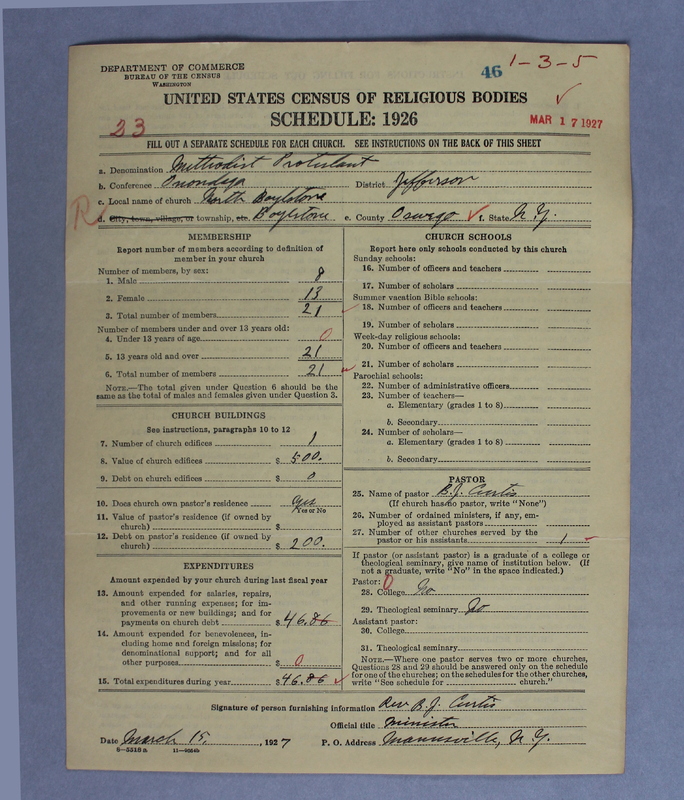 DEPARTMENT OF COMMERCE
BUREAU OF THE CENSUS
WASHINGTON
46 1-3-5
UNITED STATES CENSUS OF RELIGIOUS BODIES
SCHEDULE: 1926
MAR 17 1927
23
FILL OUT A SEPARATE SCHEDULE FOR EACH CHURCH. SEE INSTRUCTIONS ON THE BACK OF THIS SHEET
a. Denomination Methodist Protestant
b. Conference Onondaga District Jefferson
c. Local name of church North Boylston
d. City, town, village, or township, etc. Boylston e. County Oswego f. State N.Y.
R
MEMBERSHIP
Report number of members according to definition of
member in your church
Number of members, by sex:
1. Male 8
2. Female 13
3. Total number of members 21
Number of members under and over 13 years old:
4. Under 13 years of age 0
5. 13 years old and over 21
6. Total number of members 21
NOTE.—The total given under Question 6 should be the
same as the total of males and females given under Question 3.
CHURCH BUILDINGS
See instructions, paragraphs 10 to 12
7. Number of church edifices 1
8. Value of church edifices $ 500.
9. Debt on church edifices $ 0
10. Does church own pastor's residence yes
Yes or No
11. Value of pastor's residence (if owned by
church) $
12. Debt on pastor's residence (if owned by
church) $ 200.
EXPENDITURES
Amount expended by your church during last fiscal year
13. Amount expended for salaries, repairs,
and other running expenses; for im-
provements or new buildings; and for
payments on church debt $ 46.86
14. Amount expended for benevolences, in-
cluding home and foreign missions; for
denominational support; and for all
other purposes $ 0
15. Total expenditures during year $ 46.86
CHURCH SCHOOLS
Report here only schools conducted by this church
Sunday schools:
16. Number of officers and teachers
17. Number of scholars
Summer vacation Bible schools:
18. Number of officers and teachers
19. Number of scholars
Week-day religious schools:
20. Number of officers and teachers
21. Number of scholars
Parochial schools:
22. Number of administrative officers
23. Number of teachers—
a. Elementary (grades 1 to 8)
b. Secondary
24. Number of scholars—
a. Elementary (grades 1 to 8)
b. Secondary
PASTOR
25. Name of pastor B.J. Curtis
(If church has no pastor, write "None")
26. Number of ordained ministers, if any, em-
ployed as assistant pastors
27. Number of other churches served by the
pastor or his assistants 1
If pastor (or assistant pastor) is a graduate of a college or
theological seminary, give name of institution below. (If
not a graduate, write "No" in the space indicated.)
Pastor: 0
28. College No
29. Theological seminary No
Assistant pastor:
30. College
31. Theological seminary
NOTE.—Where one pastor serves two or more churches,
Questions 28 and 29 should be answered only on the schedule
for one of the churches; on the schedules for the other churches,
write "See schedule for church."
Signature of person furnishing information Rev B.J. Curtis
Official title Minister
Date March 15, , 1927 P. O. Address Mannsville, N.Y.